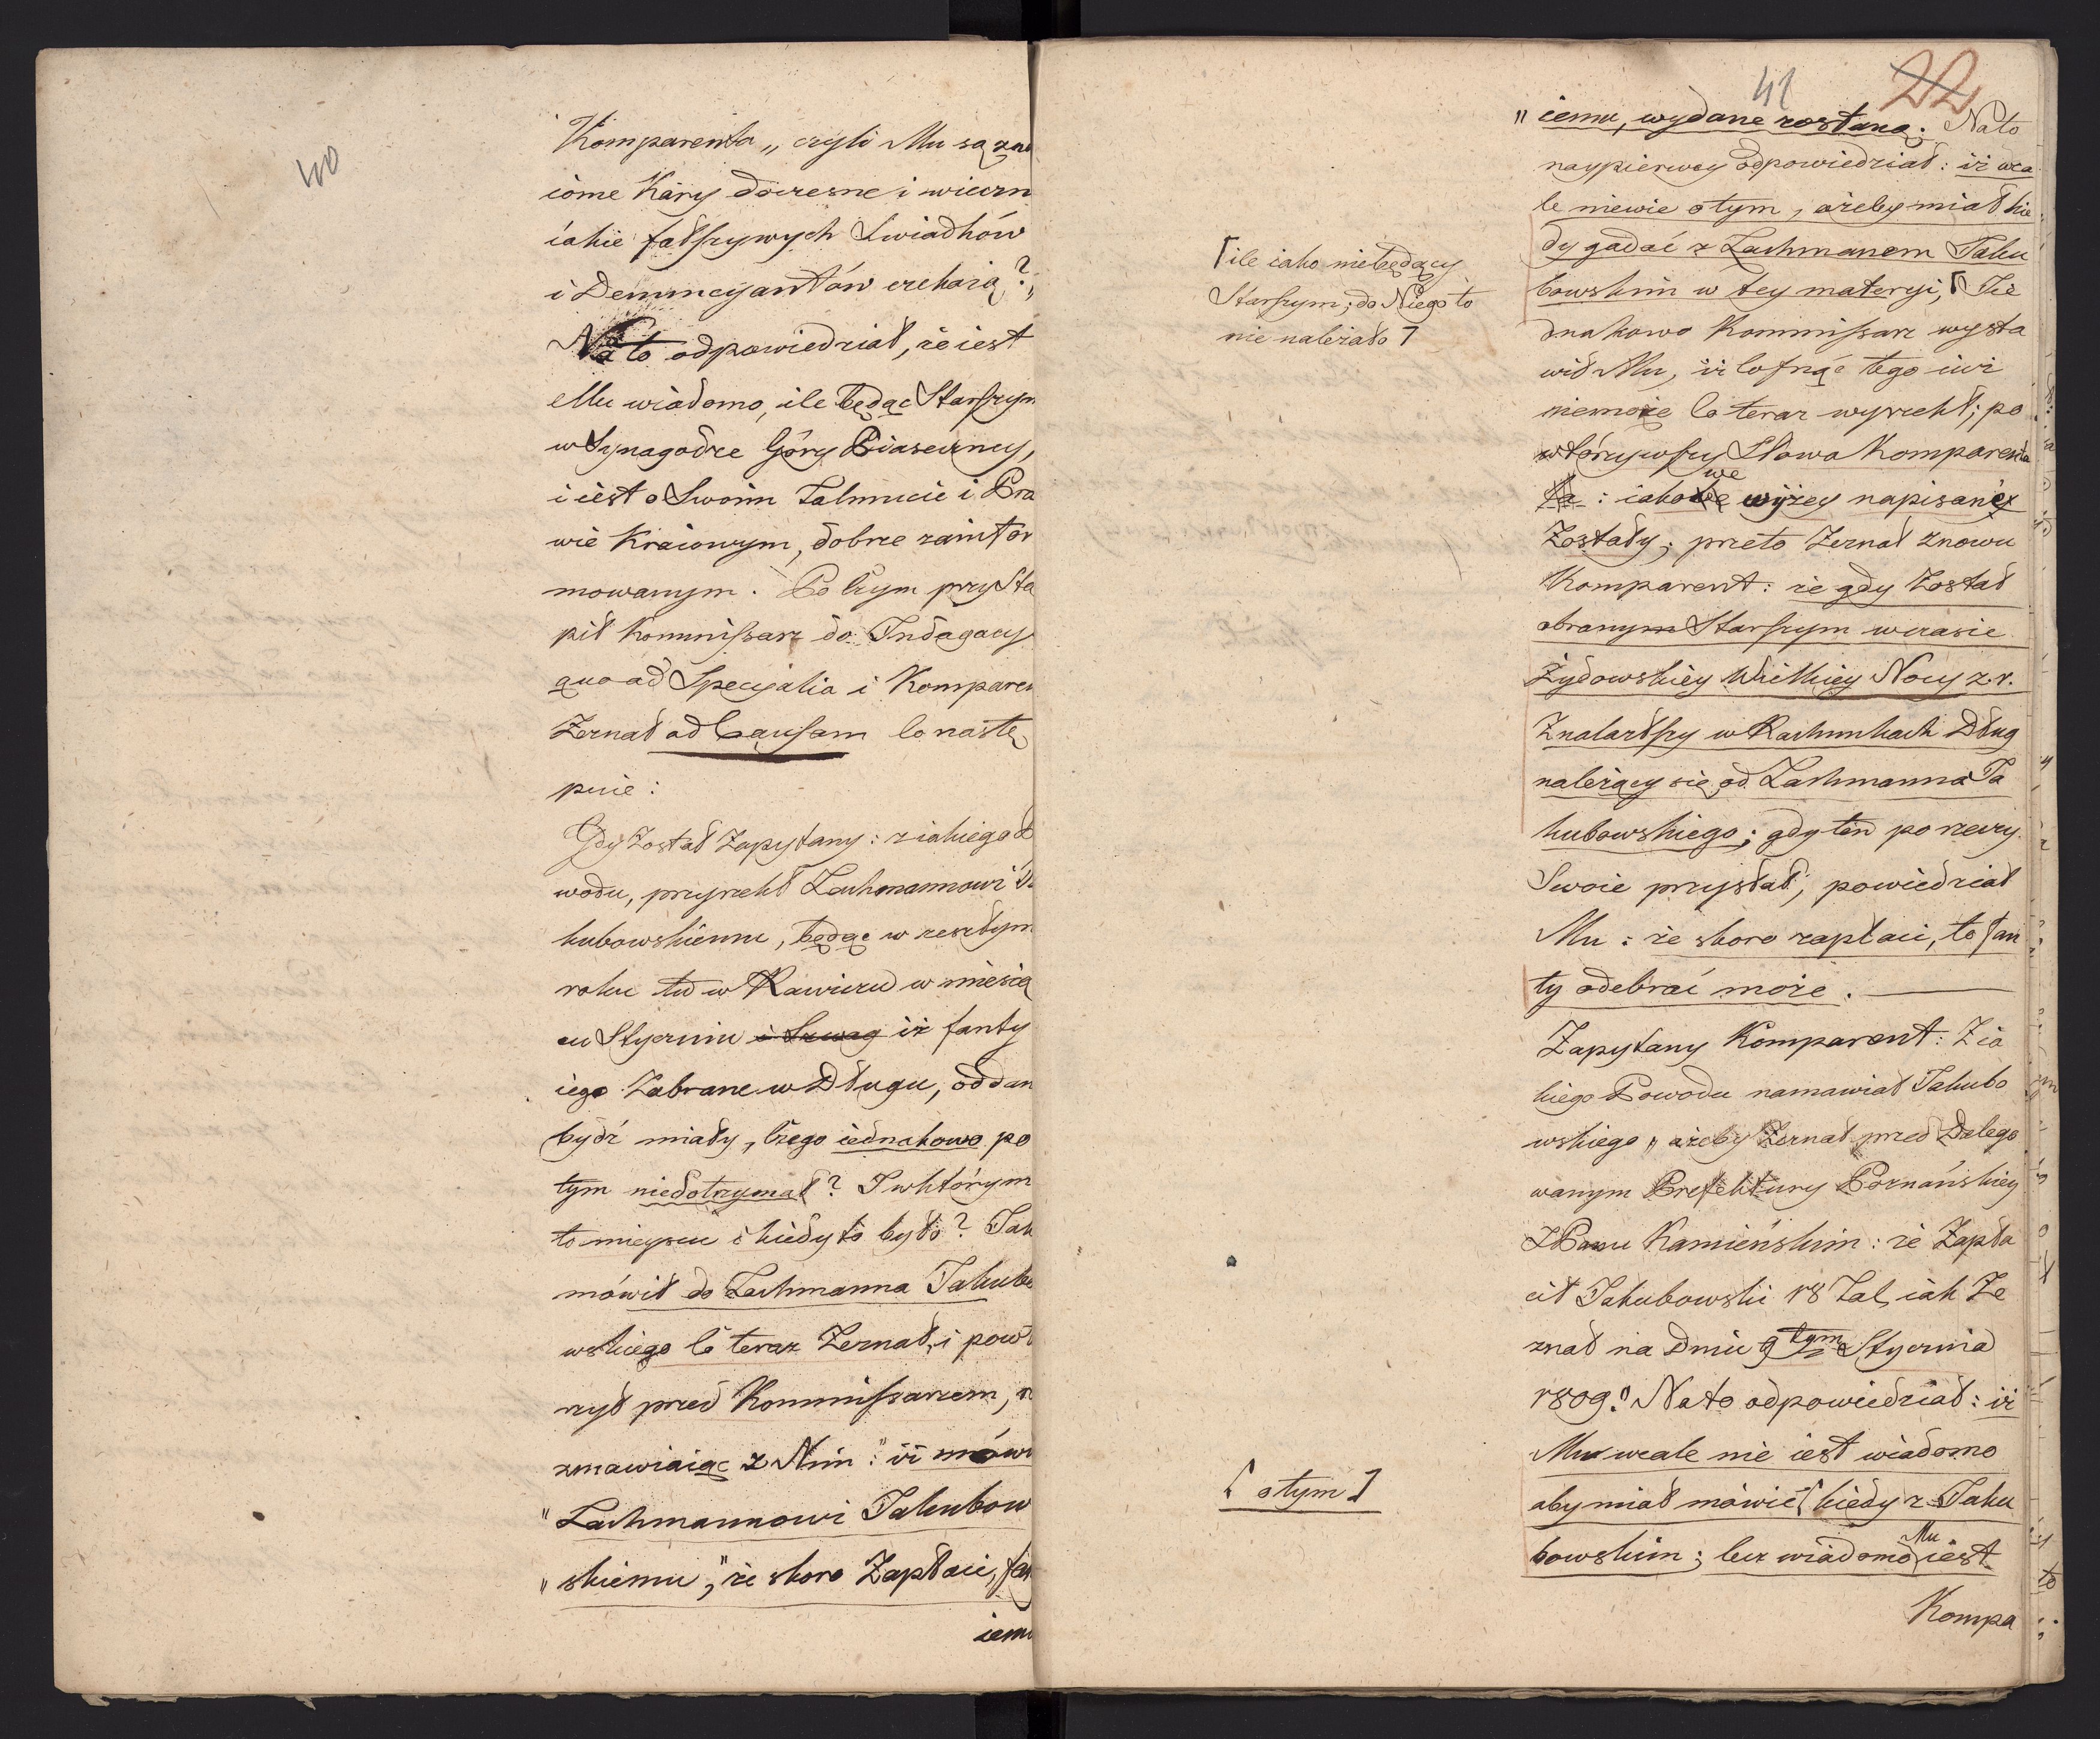 40
Komparenta „ czyli Mu są zna
iome Kary doczesne i wieczn
iakie fałszywych Swiadków
i Denuncyantów czekaią?„
Na to odpowiedział, że iest
Mu wiadomo, ile będąc Starszym
w Synagodze Góry
i iest o Swoim Talmucie i Pra
wie Kraiowym, dobrze zainfor
mowanym. Po czym przysta
pił Kommissarz do Indagacyi
quo ad Specyalia i Komparen
Zeznał ad Causam co nastę
puie:
Gdy Został Zapytany: z iakiego
wodu, przyrzekł Lachmannowi
kubowskiemu, będąc w zeszłym
roku tu w Rawiczu w miesią
cu Styczniu i Szwag iż fanty
iego Zabrane w Długu, oddan
bydź miały, czego iednakowo po
tym niedotrzymał? I w którym
to mieyscu i kiedy to było? Tak
mówił do Lachmanna Jakubo
wskiego co teraz Zeznał, i powt
rzył przed Kommissarzem,
zmawiaiąc z Nim: „iż mów
„Lachmannowi Jakubow
„skiemu,„ że skoro Zapłaci, fan
iemu
41
22
„iemu, wydane zostaną. Na to
naypierwey odpowiedział: iż wca
le niewie o tym, ażeby miał kie
dy gadać z Lachmanem Jaku
bowskim w tey materyi, ⌈ Je
⌈ ile iako niebędący
Starszym; do Niego to
nie należało ⌉
dnakowo Kommissarz wysta
wił Mu, iż cofnąć tego iuż
niemoże co teraz wyrzekł; po
wtórzywszy Słowa Komparenta
ta: iakowe we wyżey napisane
Zostały; przeto Zeznał znowu
Komparent: że gdy Został
obranym Starszym w czasie
Żydowskiey Wielkiey Nocy z. r.
Znalazłszy w Rachunkach Dług
należący się od Lachmanna Ja
kubowskiego; gdy ten po rzeczy
Swoie przysłał; powiedział
Mu: że skoro zapłaci, to fan
ty odebrać może.
Zapytany Komparent: Z ia
kiego Powodu namawiał Jakubo
wskiego „ ażeby Zeznał przed Delego
wanym Prefektury Poznańskiey
J Panu Kamieńskim: że Zapła
cił Jakubowski 18 Tal, iak Ze
znał na Dniu 9tym Stycznia
1809.„ Na to odpowiedział: iż
Mu wcale nie iest wiadomo
aby miał mówić ⌈ kiedy z Jaku
⌈ o tym ⌉
bowskim; lecz wiadomo Mu iest
Kompa